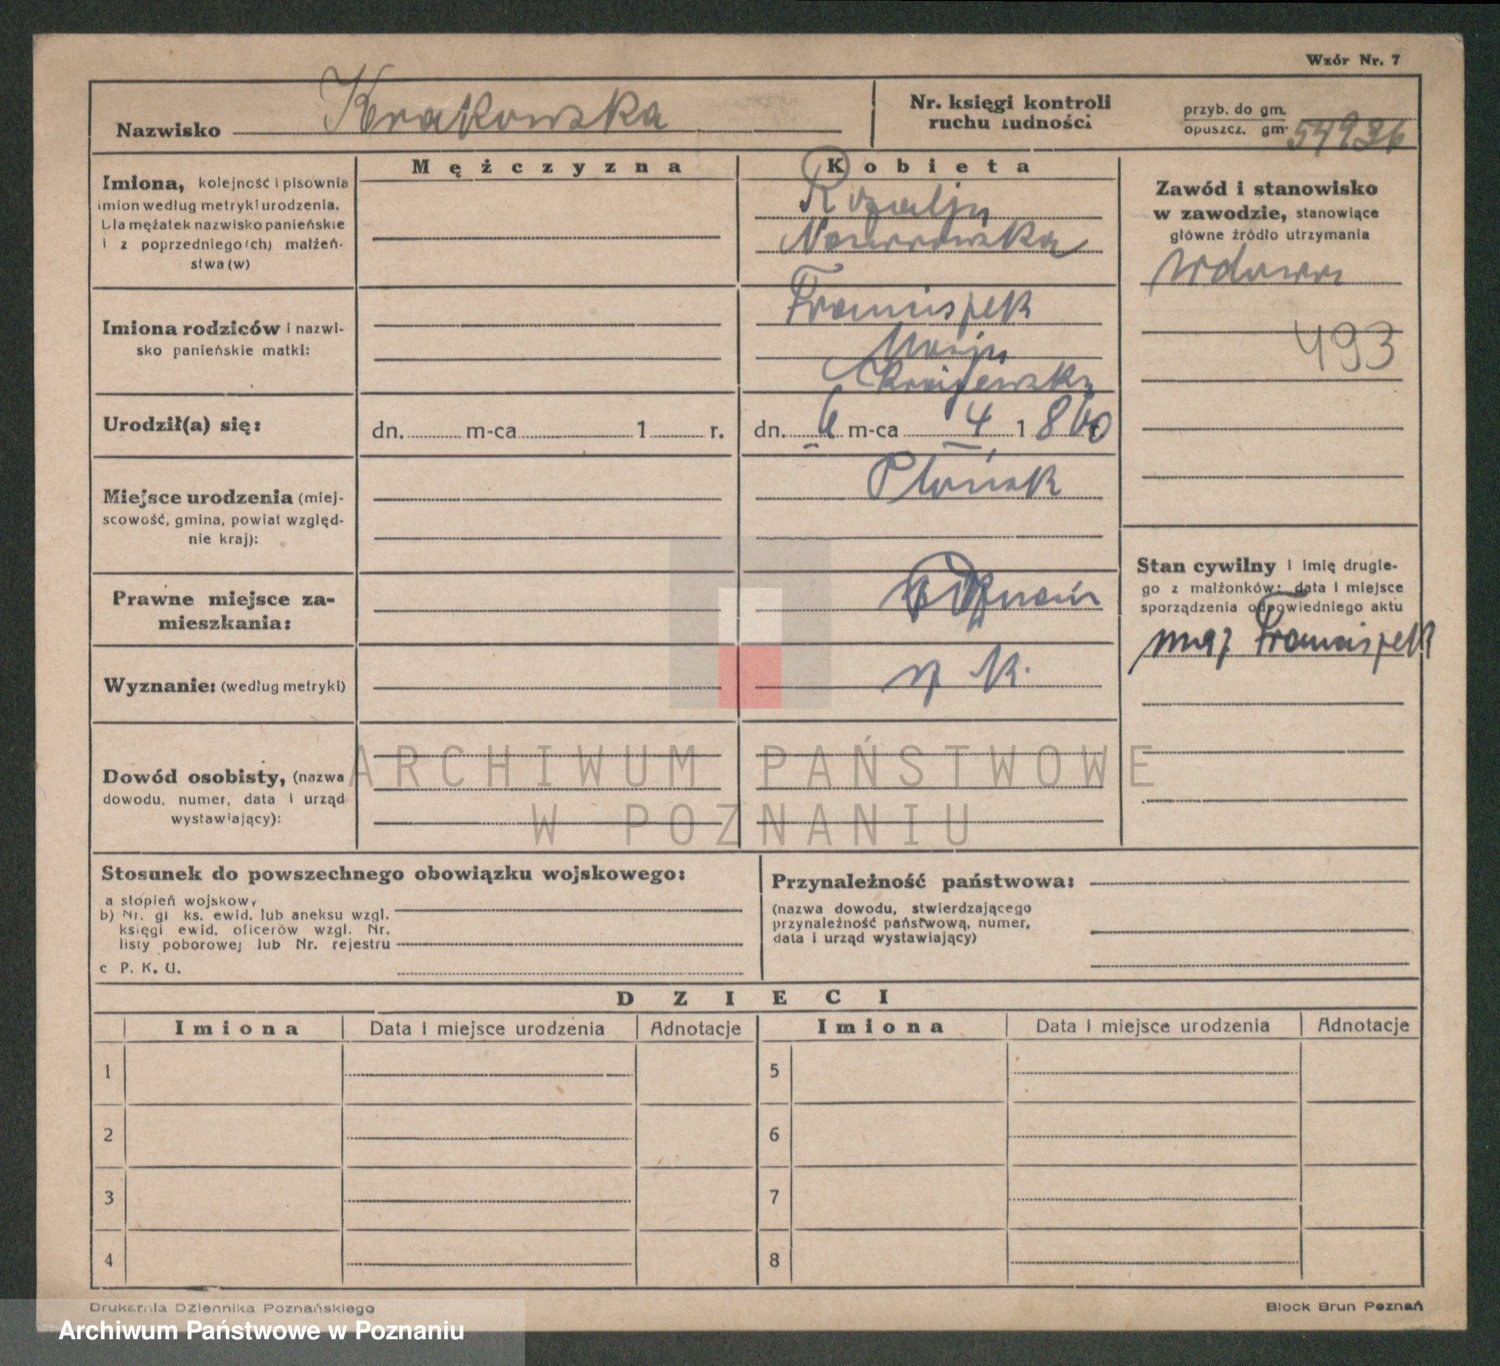 Wzór Nr. 7
Nazwisko Krakowska
Nr. księgi kontroli
ruchu ludności
przyb. do gm.
opuszcz. gm. 54926
Mężczyzna
Kobieta
Imiona, kolejność i pisownia
imion według metryki urodzenia.
Dla mężatek nazwisko panieńskie
i z poprzedniego(ch) małżeń-
stwa (w)
Rozalja
Zawód i stanowisko
w zawodzie, stanowiące
główne źródło utrzymania
wdowa
493
Imiona rodziców i nazwi-
sko panieńskie matki:
Franciszek
Marja
Krajewska
Urodził(a) się:
dn. m-ca 1 r.
dn. 6 m-ca 4 1860
Miejsce urodzenia (miej-
scowość, gmina, powiat względ-
nie kraj):
Płońsk
Prawne miejsce za-
mieszkania:
Poznań
Stan cywilny i imię drugie-
go z małżonków: data i miejsce
sporządzenia odpowiedniego aktu
mąż Franciszek
Wyznanie: (według metryki)
r. k.
Dowód osobisty, (nazwa
dowodu, numer, data i urząd
wystawiający):
ARCHIWUM PAŃSTWOWE
W POZNANIU
Stosunek do powszechnego obowiązku wojskowego:
a stopień wojskowy
b) Nr. gł ks. ewid. lub aneksu wzgl.
księgi ewid. oficerów wzgl. Nr.
listy poborowej lub Nr. rejestru
c P. K. U.
Przynależność państwowa:
(nazwa dowodu, stwierdzającego
przynależność państwową, numer,
data i urząd wystawiający)
DZIECI
Imiona Data i miejsce urodzenia Adnotacje Imiona Data i miejsce urodzenia Adnotacje
1 5
2 6
3 7
4 8
Drukarnia Dziennika Poznańskiego
Block Brun Poznań
Archiwum Państwowe w Poznaniu